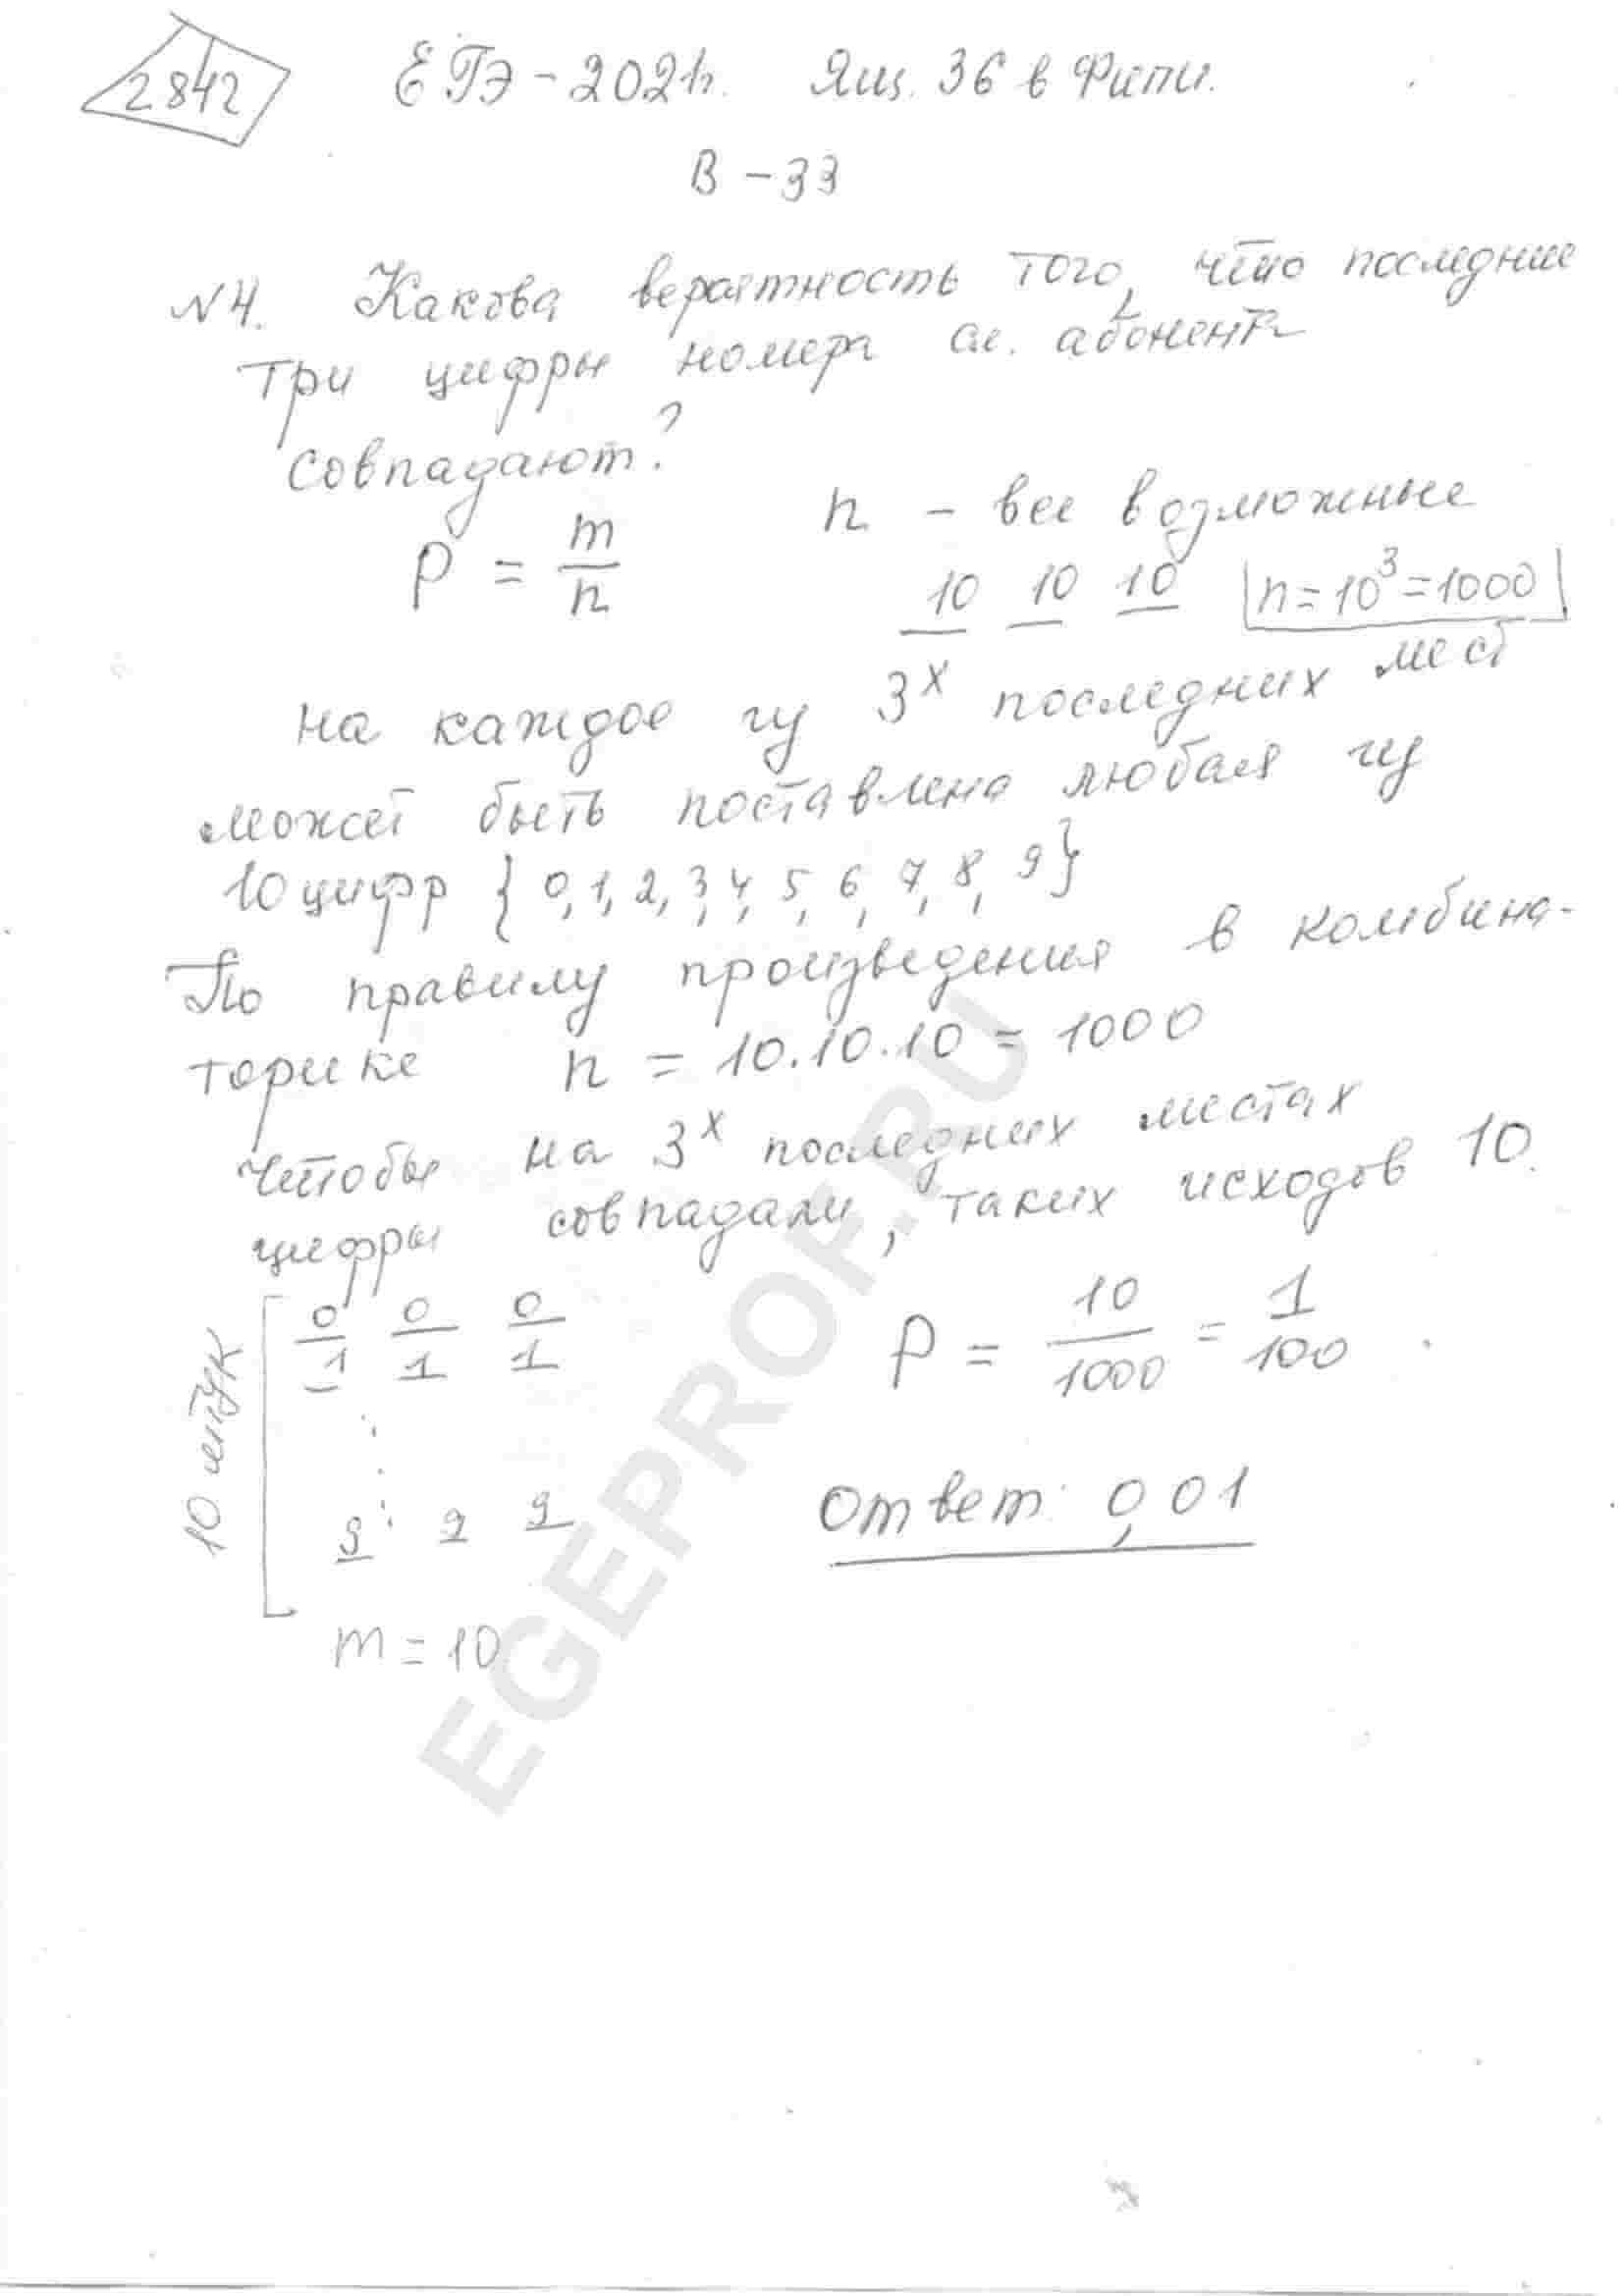 2842
ЕГЭ-2021г. Ящ. 36 в Фипи.
В-33
№4. Какова вероятность того, что последние
три цифры номера сл. абонента
совпадают?
P = m/n
n - все возможные
10 10 10 n=10³=1000
На каждое из 3х последних мест
может быть поставлена любая из
10 цифр {0,1,2,3,4,5,6,7,8,9}
По правилу произведения в комбина-
торике n = 10.10.10 = 1000
Чтобы на 3х последних местах
цифры совпадали, таких исходов 10.
10 штук
0 0 0
1 1 1
9 9 9
m = 10
P = 10/1000 = 1/100.
Ответ: 0,01
EGEPROF.RU